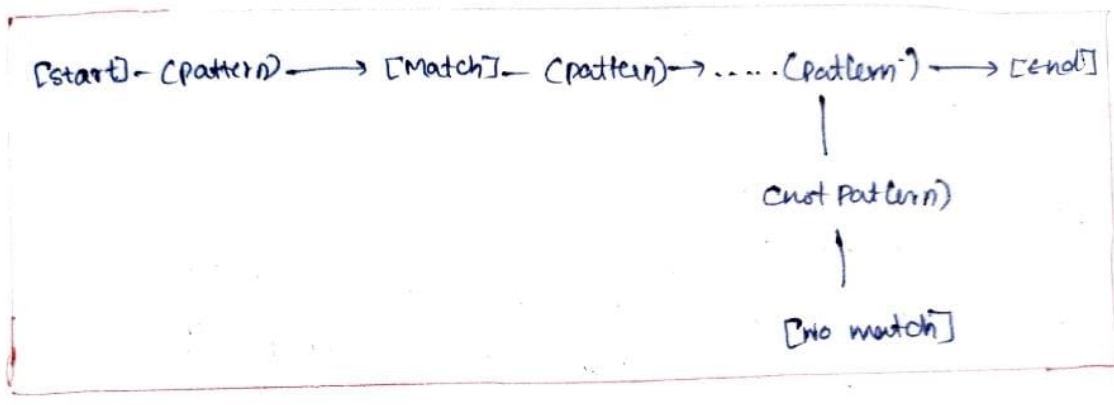 [start]-(pattern)⟶ [Match]-(pattern)→.....(pattern)⟶[end]
(not pattern)
[no match]